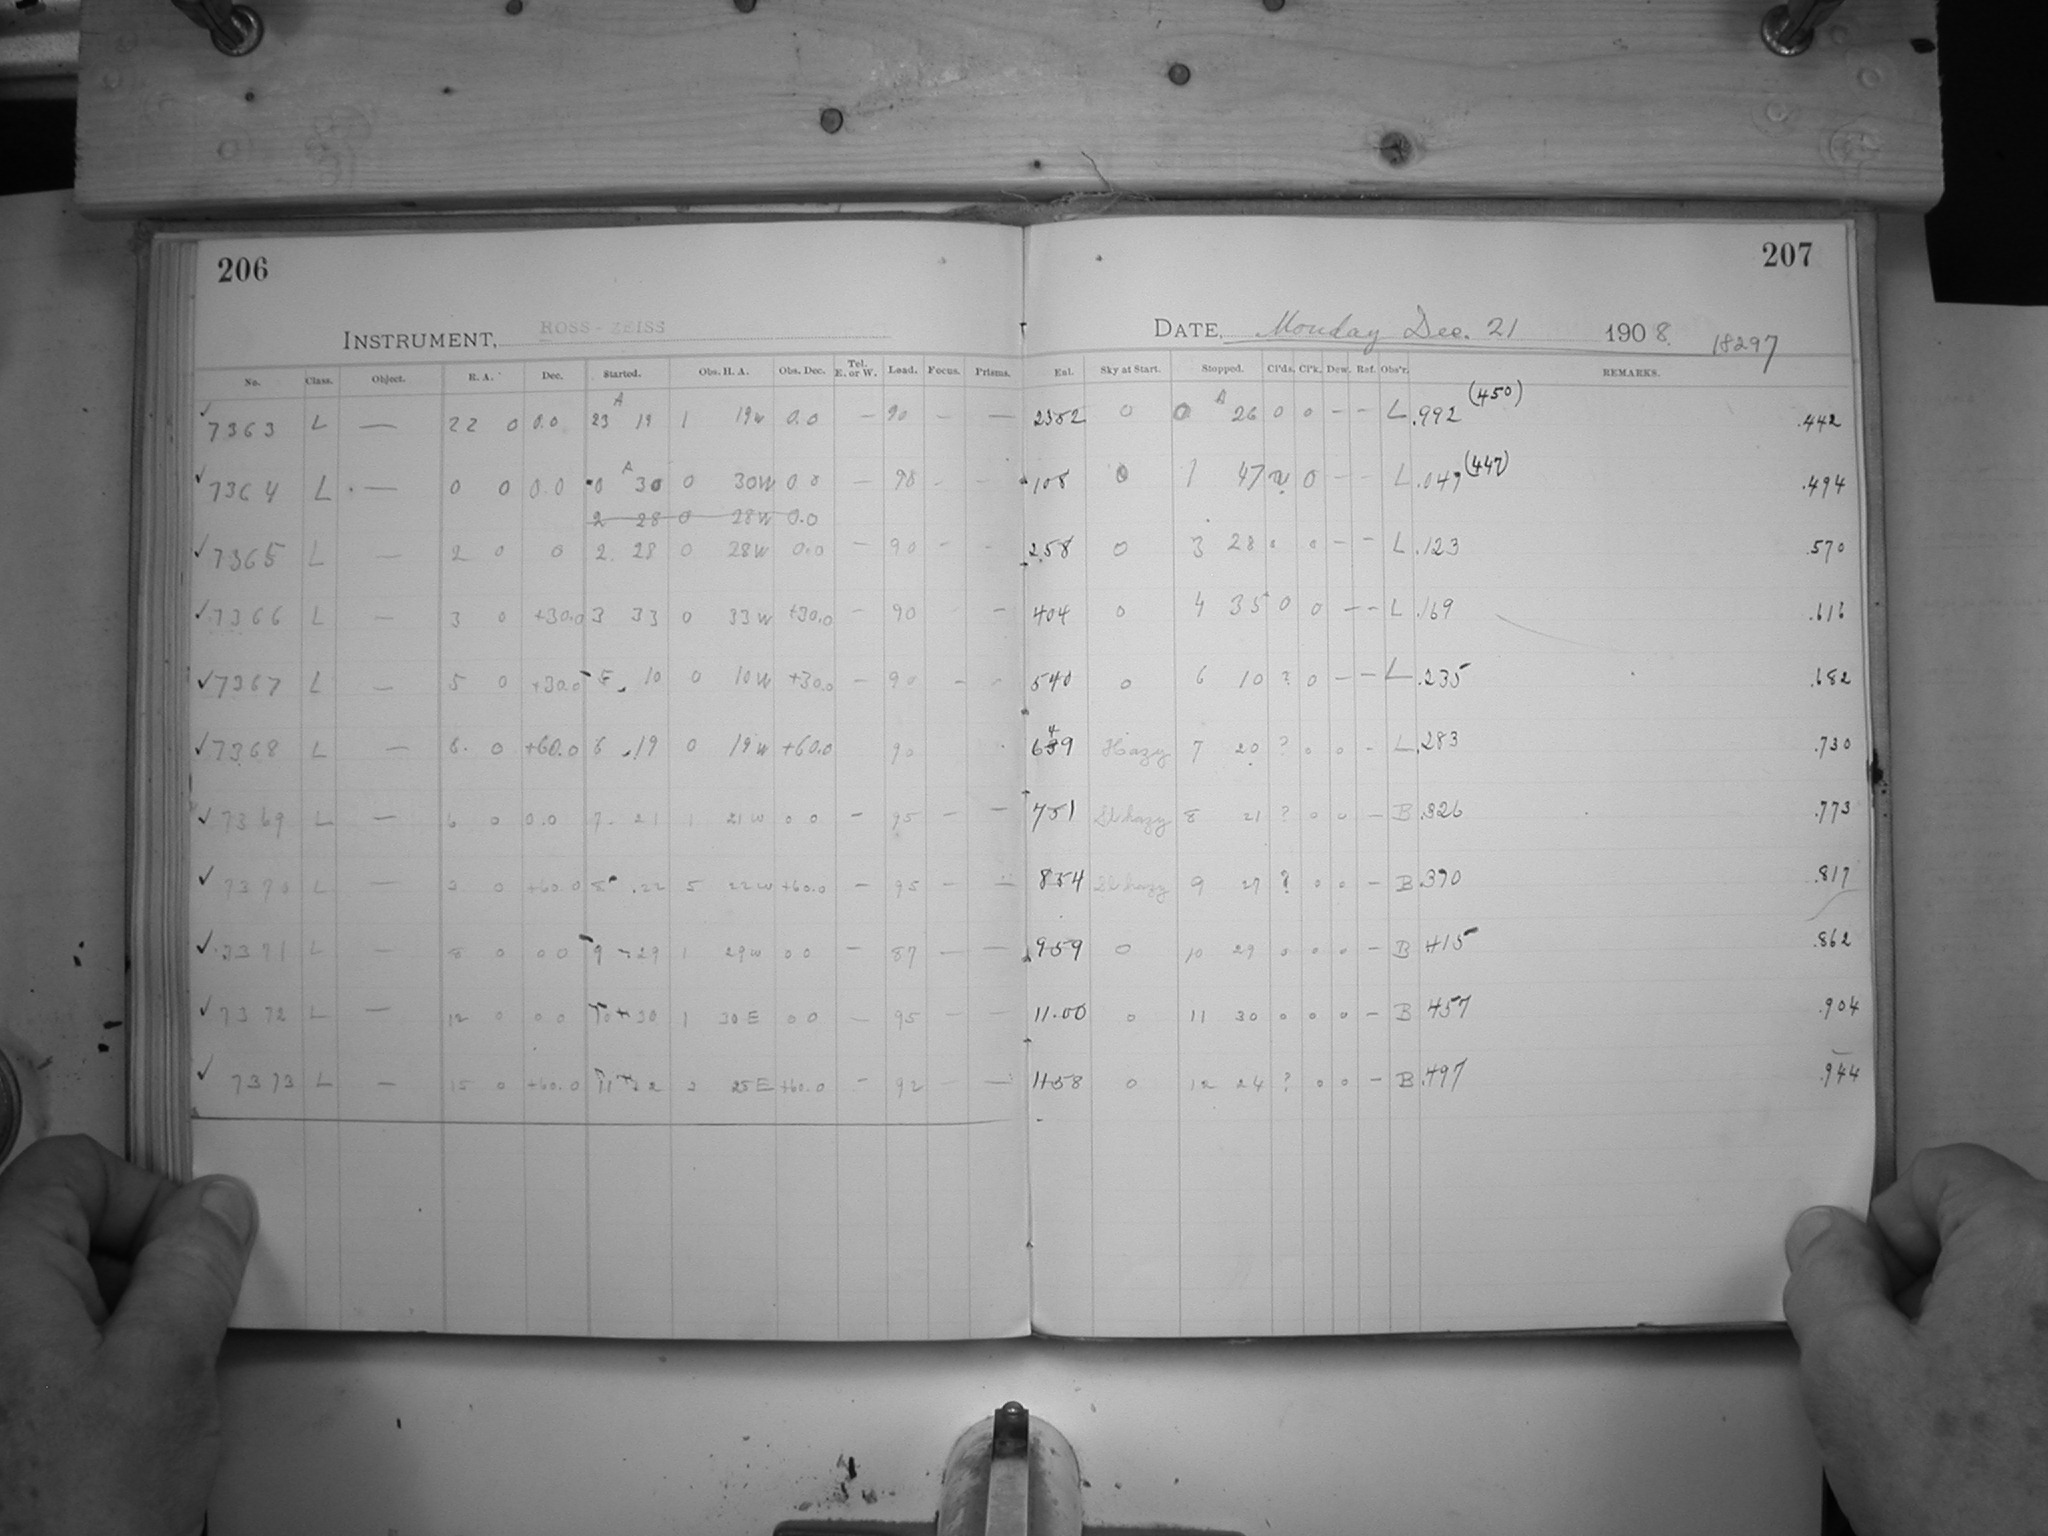 206 207
INSTRUMENT, ROSS - ZEISS DATE, Monday Dec. 21 1908. 18297
No. Class. Object. R. A. Dec. Started. Obs. H. A. Obs. Dec. Tel. E. or W. Load. Focus. Prisms. Enl. Sky at Start. Stopped. Cl'ds. Cl'k. Dew. Ref. Obs'r. REMARKS.
✓ 7363 L — 22 0 0.0 23 A 19 1 19w 0.0 — 90 – — 2352 0 0 A 26 0 0 – – L .992 (450) .442
✓ 7364 L — 0 0 0.0 0 A 30 0 30W 0 0 — 98 – – 108 0 1 47 0 – – L .049 (447) .494
2 28 0 28W 0.0
✓ 7365 L — 2 0 0 2. 28 0 28W 0.0 — 90 – – 258 0 3 28 0 0 – – L .123 .570
✓ 7366 L — 3 0 +30.0 3 33 0 33W +30.0 – 90 – – 404 0 4 35 0 0 – – L .169 .616
✓ 7367 L — 5 0 +30.0 5. 10 0 10W +30.0 – 90 – – 540 0 6 10 ? 0 – – L .235 .682
✓ 7368 L — 6. 0 +60.0 6 .19 0 19W +60.0 90 649 Hazy 7 20 ? 0 0 – L .283 .730
✓ 7369 L — 6 0 0.0 7. 21 1 21W 0 0 – 95 – — 751 Sl hazy 8 21 ? 0 0 – B .326 .773
✓ 7370 L — 3 0 +60.0 8 .22 5 22W +60.0 – 95 – – 854 Sl hazy 9 27 ? 0 0 – B .390 .817
✓ 7371 L — 8 0 0 0 9 29 1 29W 0 0 – 87 — — 959 0 10 29 0 0 0 – B 415 .862
✓ 7372 L — 12 0 0 0 10 30 1 30 E 0 0 – 95 — — 11.00 0 11 30 0 0 0 – B 457 .904
✓ 7373 L — 15 0 +60.0 11 22 3 25 E +60.0 – 92 – — 1158 0 12 24 ? 0 0 – B .497 .944